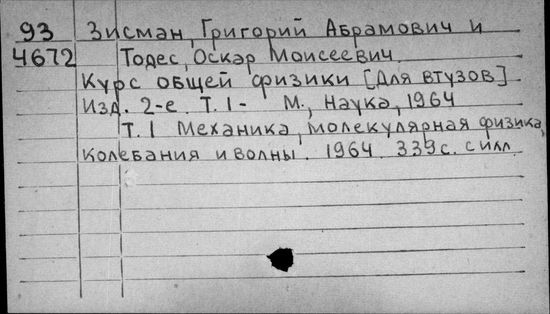 93 Зисман, Григорий Абрамович и
4672 Тодес, Оскар Моисеевич.
Курс общей физики [Для втузов]
Изд. 2-е. Т. 1- М., Наука, 1964
Т. 1 Механика, молекулярная физика,
колебания и волны. 1964. 339 с. с илл.